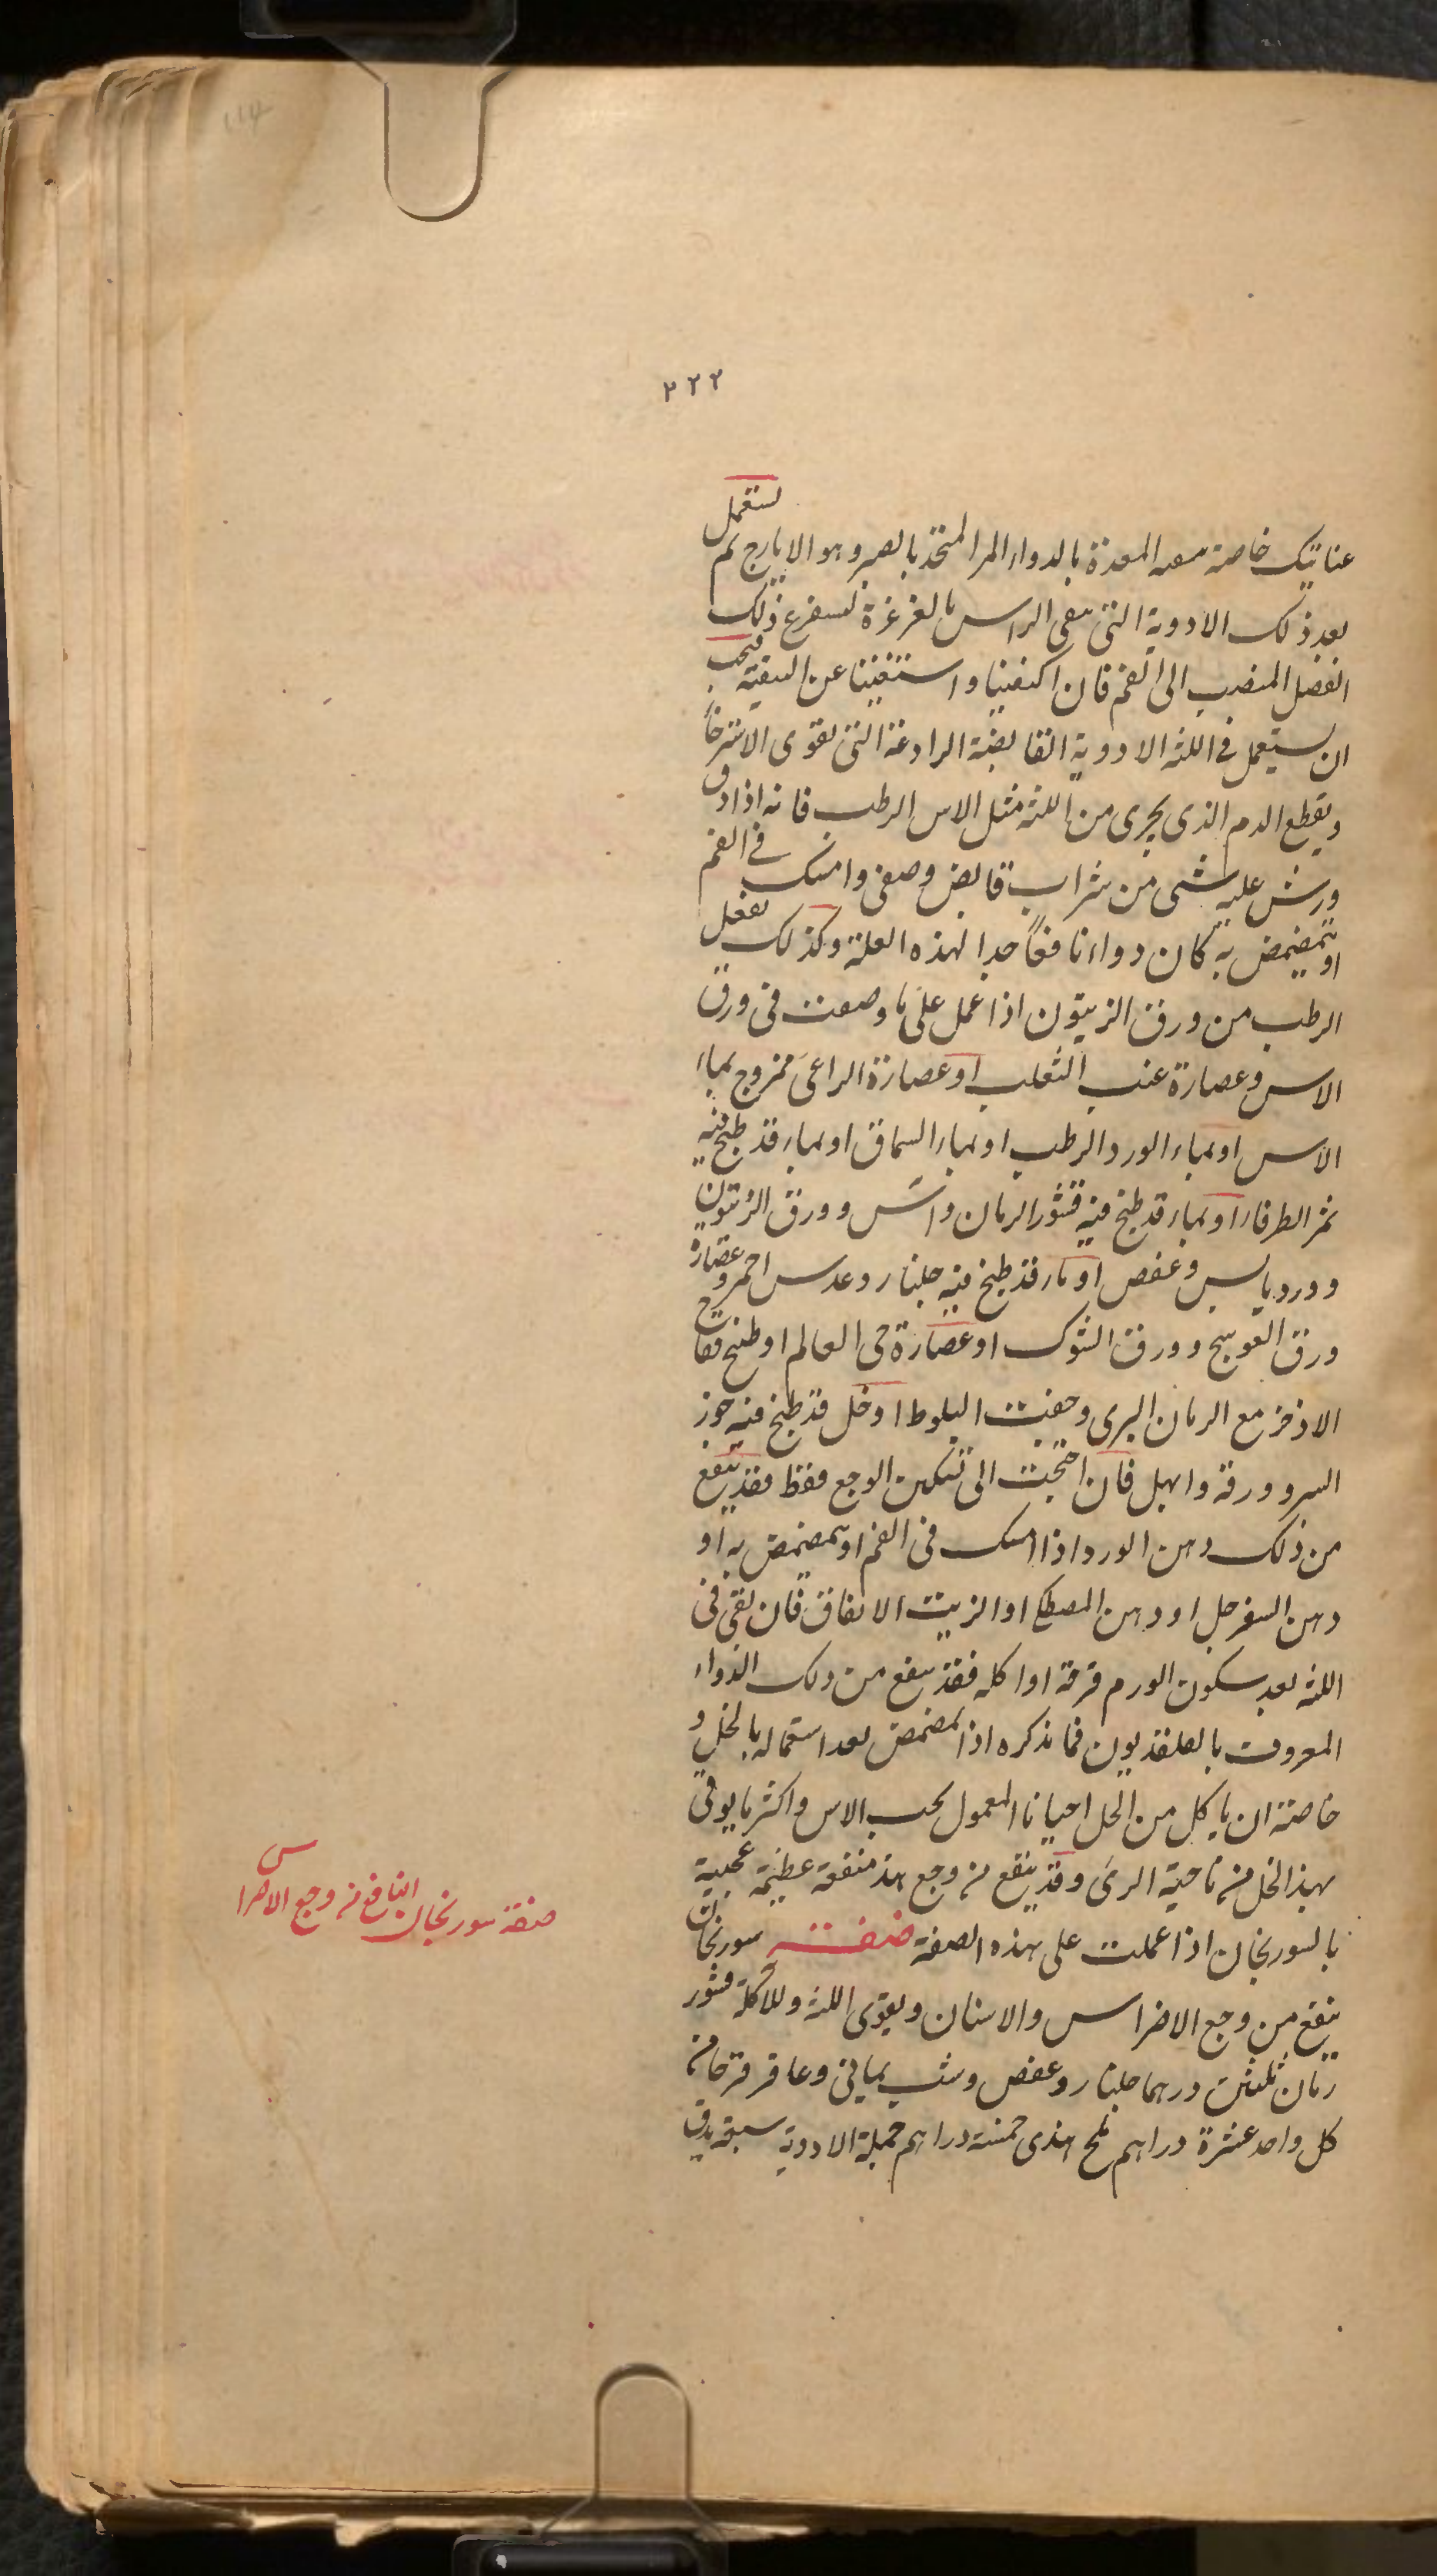 ٢٢٢
عنايتك خاصة سعه المعدة بالدواء المر المتخذ بالصبر وهو الايارج ثم لستعمل
بعد ذلك الادوية التى سقى الراس بالغرغرة لسفرغ ذلك
الفضل المنصب الى الفم فان اكتفينا واستغنينا عن السقية فيجب
ان يستعمل فى اللثه الادوية القابضة الرادعة التى تقوى الاسترخا
ويقطع الدم الذى يجرى من اللثه مثل الاس الرطب فانه اذا دق
ورش عليه شى من شراب قابض وصفى وامسك فى الفم
او يتمضمض به كان دواء نافعاً جدا لهذه العلة وكذلك يفعل
الرطب من ورق الزيتون اذا عمل على ما وصفت فى ورق
الاس وعصارة عنب الثعلب او عصارة الراعى ممزوج بماء
الاس او بماء الورد الرطب او بماء السماق او بماء قد طبخ فيه
ثمر الطرفاء او بماء قد طبخ فيه قشور الرمان واس وورق الزيتون
وورد يابس وعفص او ماء قد طبخ فيه جلنار وعدس احمر وعصارة
ورق العوسج وورق الشوك او عصارة حى العالم او طبخ فقاح
الاذخر مع الرمان البرى وجفت البلوط او خل قد طبخ فيه جوز
السرو ورقه وابهل فان احتجت الى تسكين الوجع فقط فقد ينفع
من ذلك دهن الورد اذا امسك فى الفم او تمضمض به او
دهن السفرجل او دهن المصطكا او الزيت الانفاق فان بقى فى
اللثه بعد سكون الورم قرحة او اكله فقد ينفع من ذلك الدواء
المعروف بالعلقديون فما نذكره اذا تمضمض بعد استعماله بالخل و
خاصته ان ياكل من الخل احيانا المعمول بحب الاس واكثر ما يوتى
بهذا الخل من ناحية الرى وقد ينفع من وجع هذ منفعة عظيمة عجيبة
بالسورنجان اذا عملت على هذه الصفة صفة سورنجان
ينفع من وجع الاضراس والاسنان ويقوى اللثه وللاكلة قشور
رمان ثلثين درهما جلنار وعفص وشب يمانى وعاقرقرحا من
كل واحد عشرة دراهم ملح هندى خمسة دراهم جملة الادوية سبعة يدق
صفة سورنجان النافع من وجع الاضراس